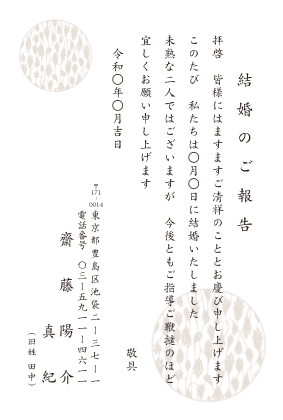 結婚のご報告
拝啓　皆様にはますますご清祥のこととお慶び申し上げます
このたび　私たちは〇月〇日に結婚いたしました
未熟な二人ではございますが　今後ともご指導ご鞭撻のほど
宜しくお願い申し上げます
敬具
令和〇年〇月吉日
〒171-0014
東京都豊島区池袋二ー三七ー一
電話番号　〇三ー五九一一ー四六一一
齋藤　陽介
真紀
（旧姓　田中）